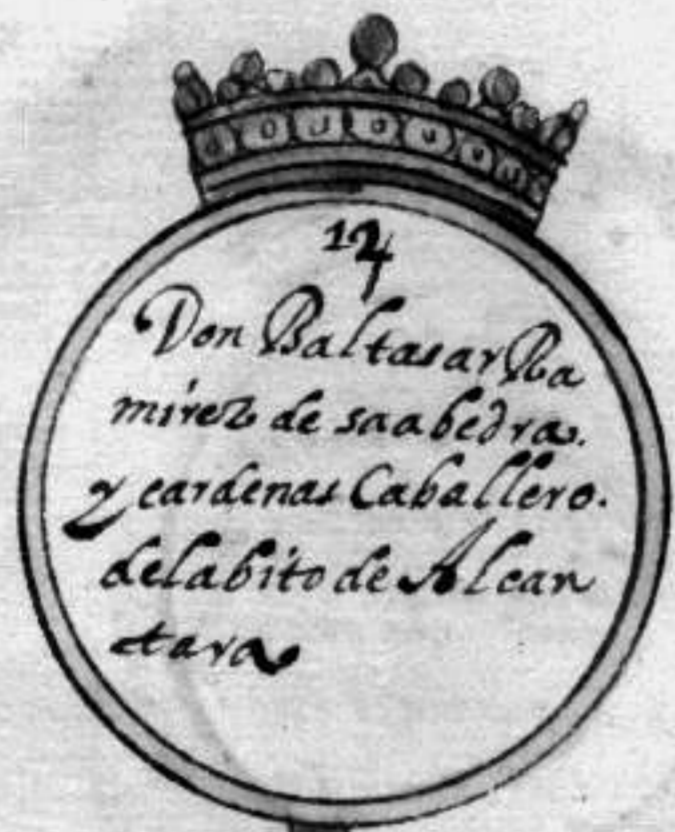 14
Don Baltasar Ra
mirez de saabedra.
y cardenas Caballero.
delabito de Alcan
tara